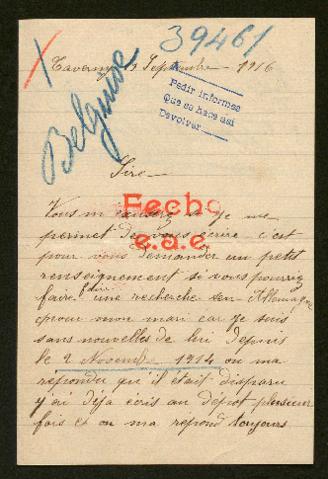 39461
Taverny 13 Septembre 1916
Pedir informes
Que se hace asi
Devolver
Belgique
Sire
Fecho
e.a.e.
Vous m'excuserez si je me
permet de vous écrire c'est
pour vous demander un petit
renseignement si vous pourriez
faire faire une recherche en Allemagne
pour mon mari car je suis
sans nouvelles de lui depuis
le 2 Novembre 1914 on ma
répondu qu'il était disparu
j'ai déja écris au dépot plusieur
fois et on ma répond toujours